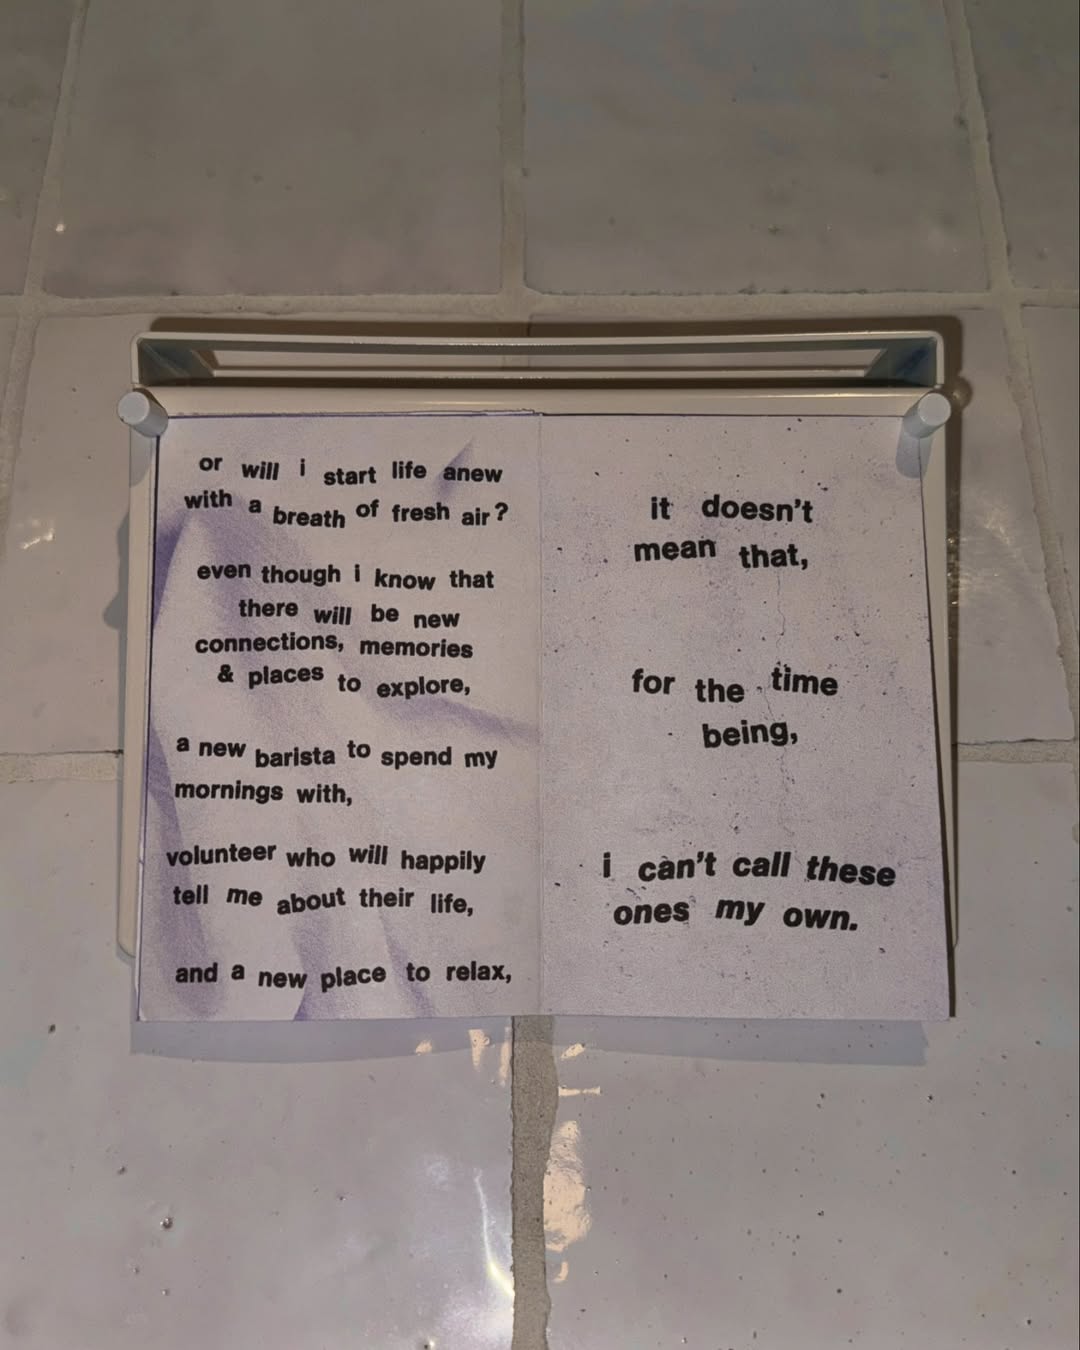 or will i start life anew
with a breath of fresh air?
even though i know that
there will be new
connections, memories
& places to explore,
a new barista to spend my
mornings with,
volunteer who will happily
tell me about their life,
and a new place to relax,
it doesn't
mean that,
for the time
being,
i can't call these
ones my own.